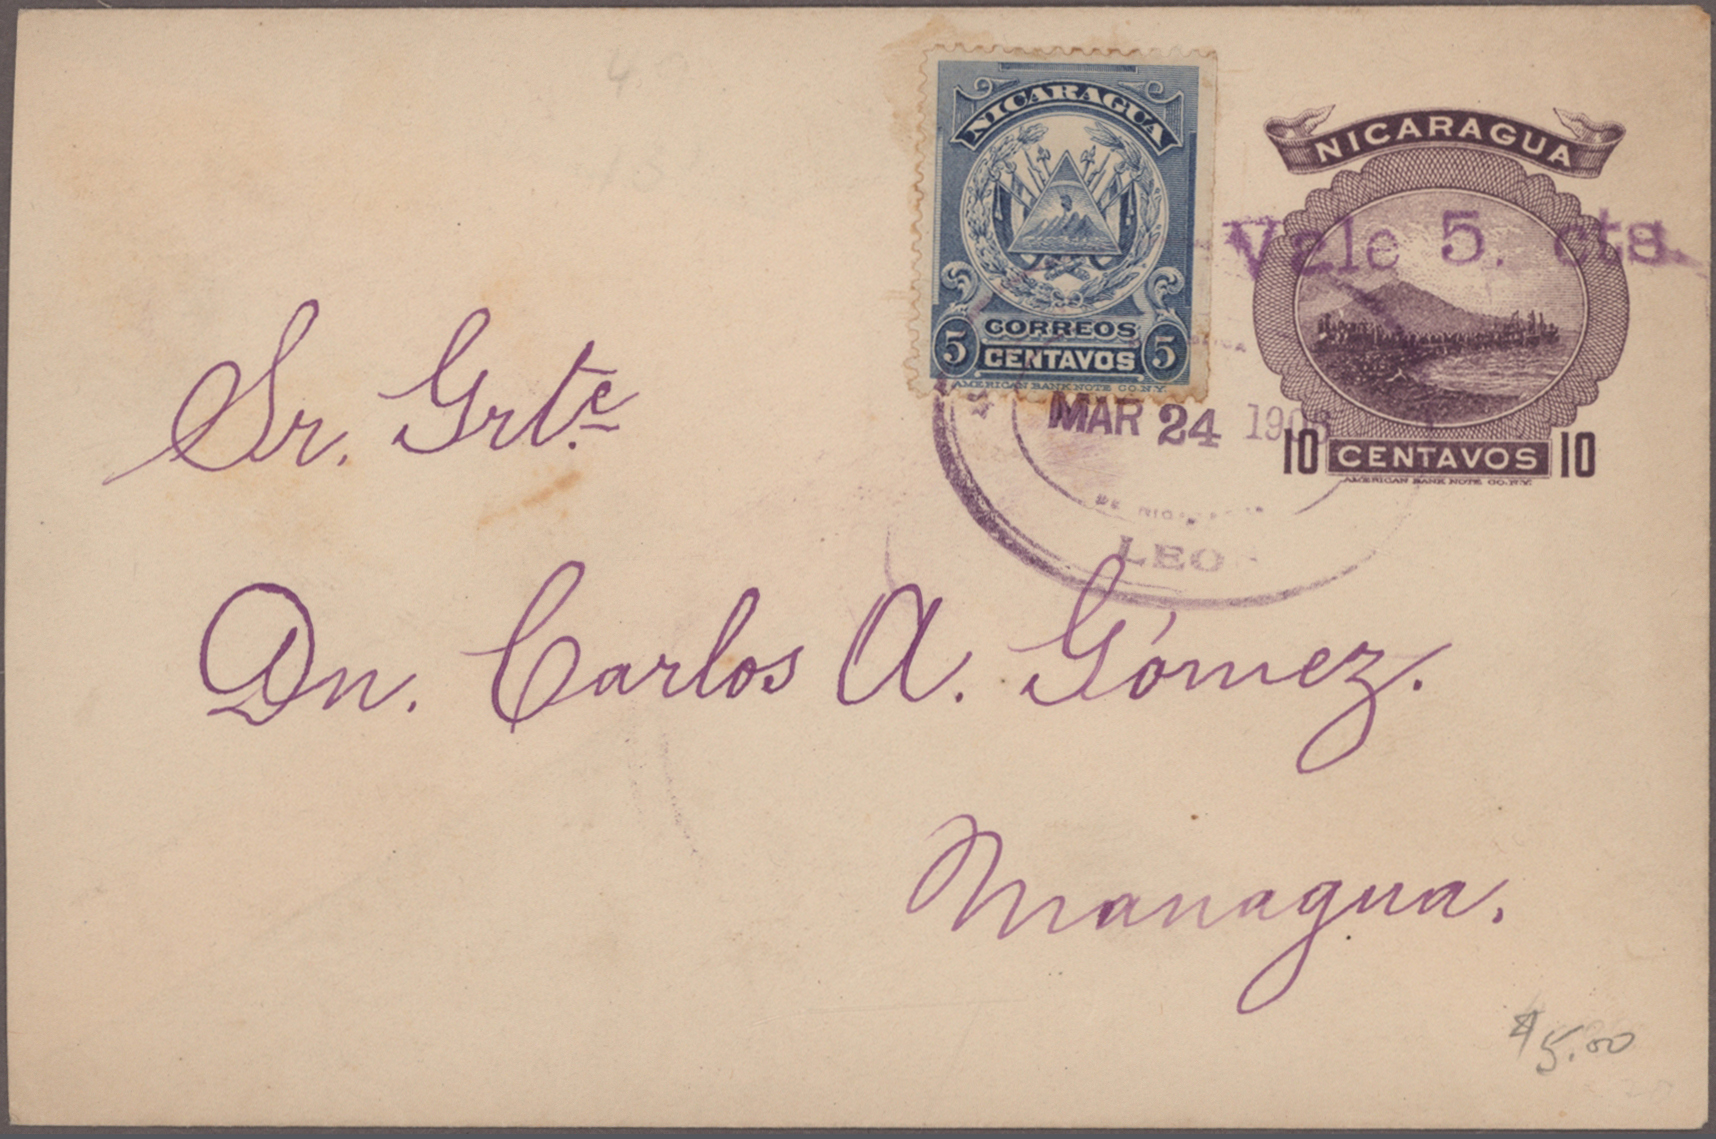 NICARAGUA
CORREOS
5 CENTAVOS 5
AMERICAN BANK NOTE CO. N.Y.
NICARAGUA
Vale 5. cts
10 CENTAVOS 10
AMERICAN BANK NOTE CO. N.Y.
MAR 24
LEO
Sr. Grte.
Dn. Carlos A. Gómez.
Managua.
$5.00